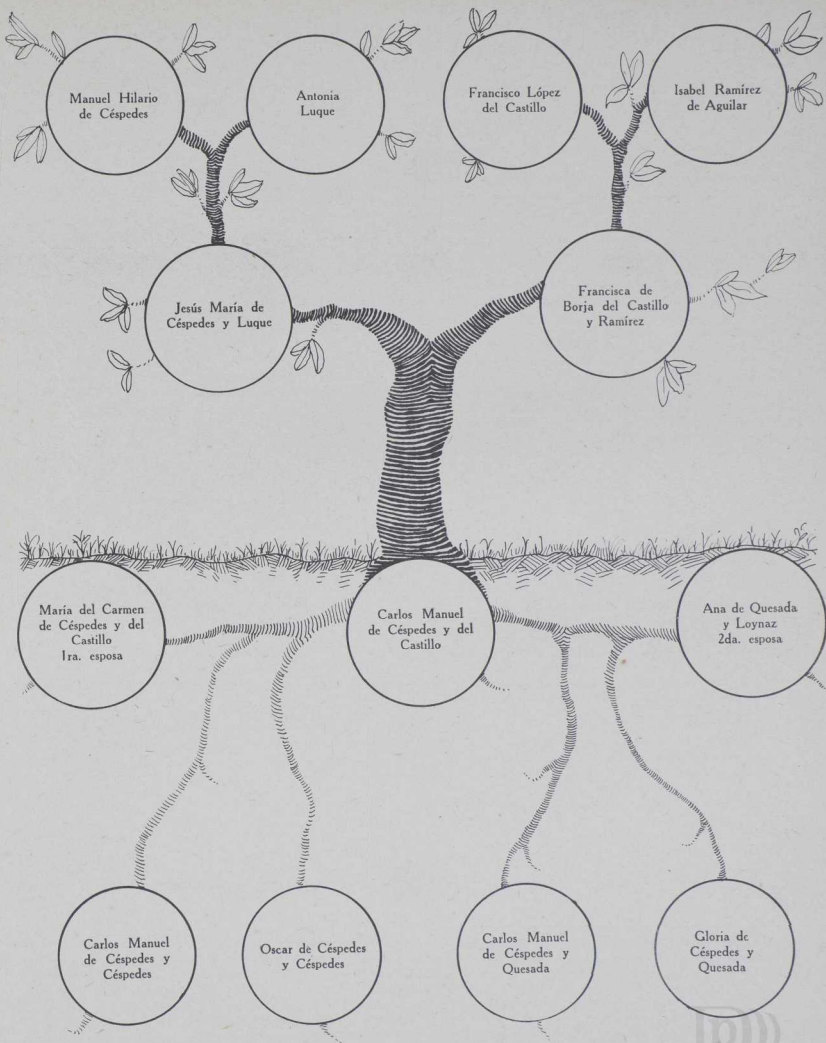 Manuel Hilario
de Céspedes
Antonia
Luque
Francisco López
del Castillo
Isabel Ramírez
de Aguilar
Jesús María de
Céspedes y Luque
Francisca de
Borja del Castillo
y Ramírez
María del Carmen
de Céspedes y del
Castillo
1ra. esposa
Carlos Manuel
de Céspedes y del
Castillo
Ana de Quesada
y Loynaz
2da. esposa
Carlos Manuel
de Céspedes y
Céspedes
Oscar de Céspedes
y Céspedes
Carlos Manuel
de Céspedes y
Quesada
Gloria de
Céspedes y
Quesada